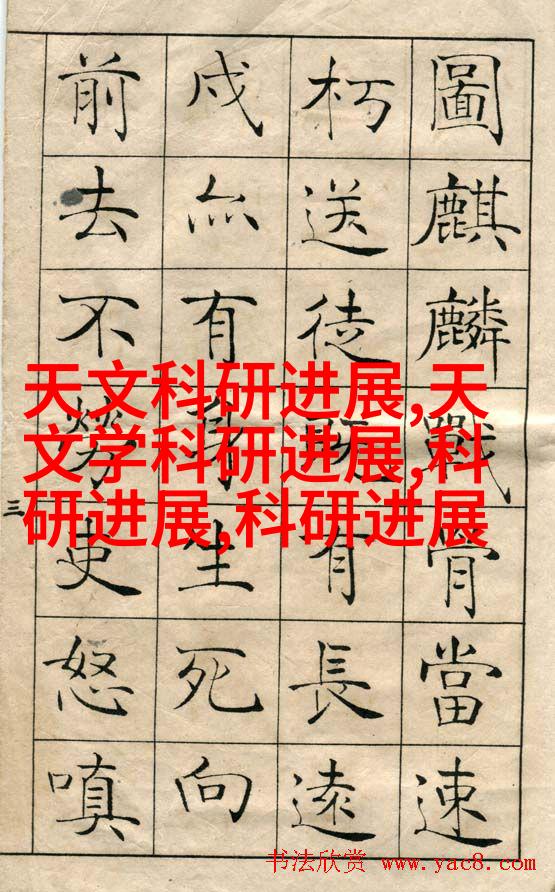 圖麒麟戰骨當速
朽送徒既有長遠
戍亦有身生死向
前去不勞吏怒嗔
三
天文科研进展,天
文学科研进展,科
研进展,科研进展
书法欣赏 www.yac8.com